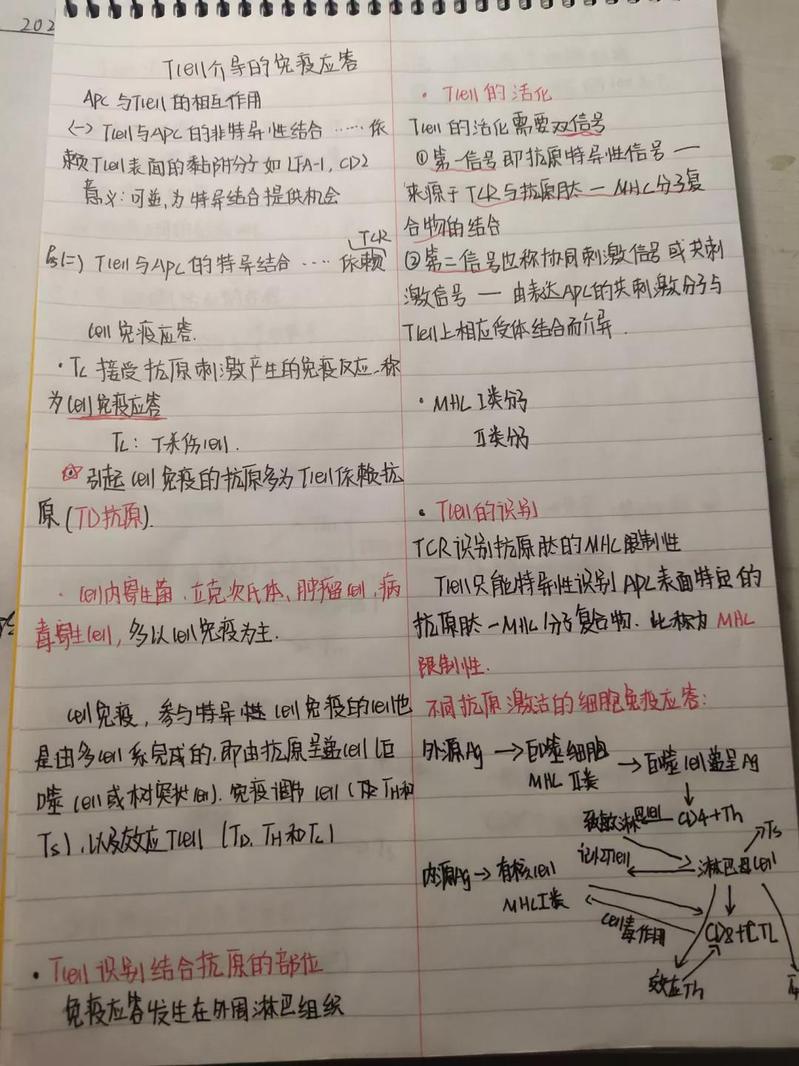 202
Tcell介导的免疫应答
APC与Tcell的相互作用
(一) Tcell与APC的非特异性结合……依
赖Tcell表面的黏附分子如LFA-1, CD2
意义:可逆,为特异结合提供机会
(二) Tcell与APC的特异结合……依赖
TCR
cell免疫应答.
·Tc 接受抗原刺激产生的免疫反应,称
为cell免疫应答
Tc: T杀伤cell.
引起cell免疫的抗原多为Tcell依赖抗
原(TD抗原).
·cell内寄生菌、立克次氏体、肿瘤cell、病
毒寄生cell,多以cell免疫为主.
cell免疫,参与特异性cell免疫的cell也
是由多cell系完成的,即由抗原呈递cell(巨
噬cell或树突状cell).免疫调节cell(TH和
Ts),以及效应Tcell (TD, TH和Tc)
·Tcell识别结合抗原的部位
免疫应答发生在外周淋巴组织
·Tcell的活化
Tcell的活化需要双信号
①第一信号即抗原特异性信号—
来源于TCR与抗原肽—MHC分子复
合物的结合
②第二信号也称协同刺激信号或共刺
激信号—由表达APC的共刺激分子与
Tcell上相应受体结合而介导.
·MHC I类分子
II类分子
·Tcell的识别
TCR识别抗原肽的MHC限制性
Tcell只能特异性识别APC表面特定的
抗原肽—MHC分子复合物.此称为MHC
限制性.
不同抗原激活的细胞免疫应答:
外源Ag→巨噬细胞→巨噬cell递呈Ag
MHC II类
致敏淋巴cell CD4+Th
Ts
记忆Tcell 淋巴母cell
内源Ag→有核cell
MHC I类
cell毒作用 CD8+CTL
效应Th